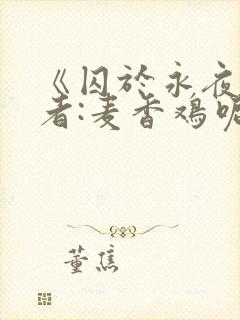 《囚於永夜
者:麦香鸡呢
董焦